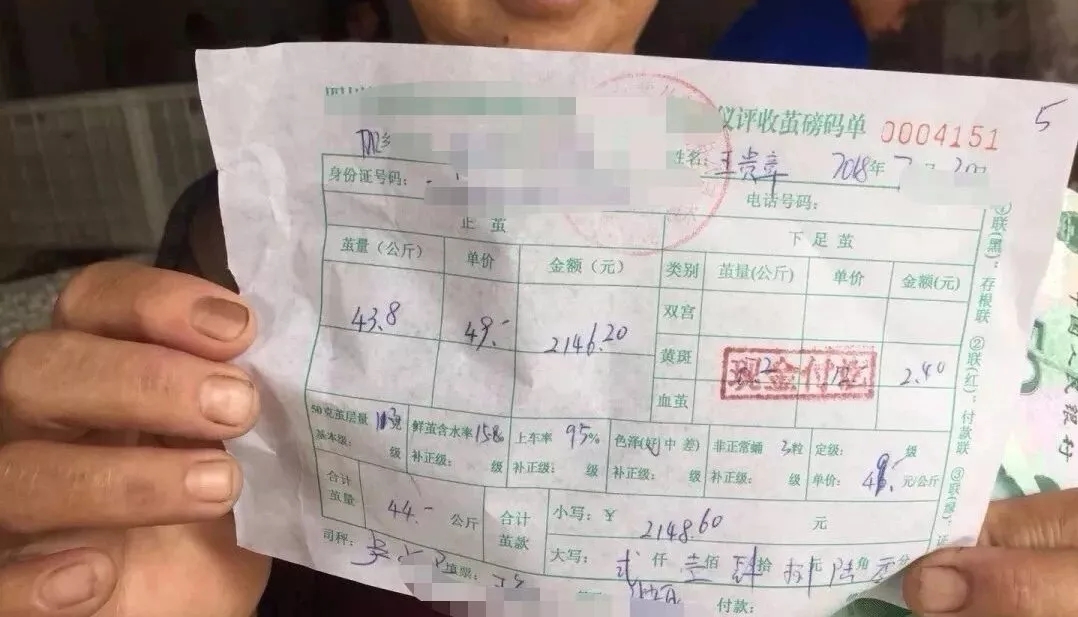 仪评收茧磅码单 0004151 5
姓名: 王贵章 2018年
身份证号码: 电话号码:
正 茧 下 足 茧
茧量（公斤） 单价 金额（元） 类别 茧量(公斤) 单价 金额(元)
43.8 49.- 2146.20 双宫
黄斑 2.40
现金付讫
血茧
50克茧层量 鲜茧含水率 上车率 95% 色泽(好 中 差) 非正常蛹 3粒 定级: 级
基本级: 级 补正级: 级 补正级: 级 补正级: 级 补正级: 级 单价: 49.- 元/公斤
合计茧量 44.- 公斤 合计茧款 小写: ¥ 2148.60 元
大写: 贰 仟 壹 佰 肆 拾 捌 元 陆 角 分
司秤: 填票: 付款:
①联(黑): 存根联 ②联(红): 付款联 ③联(绿):